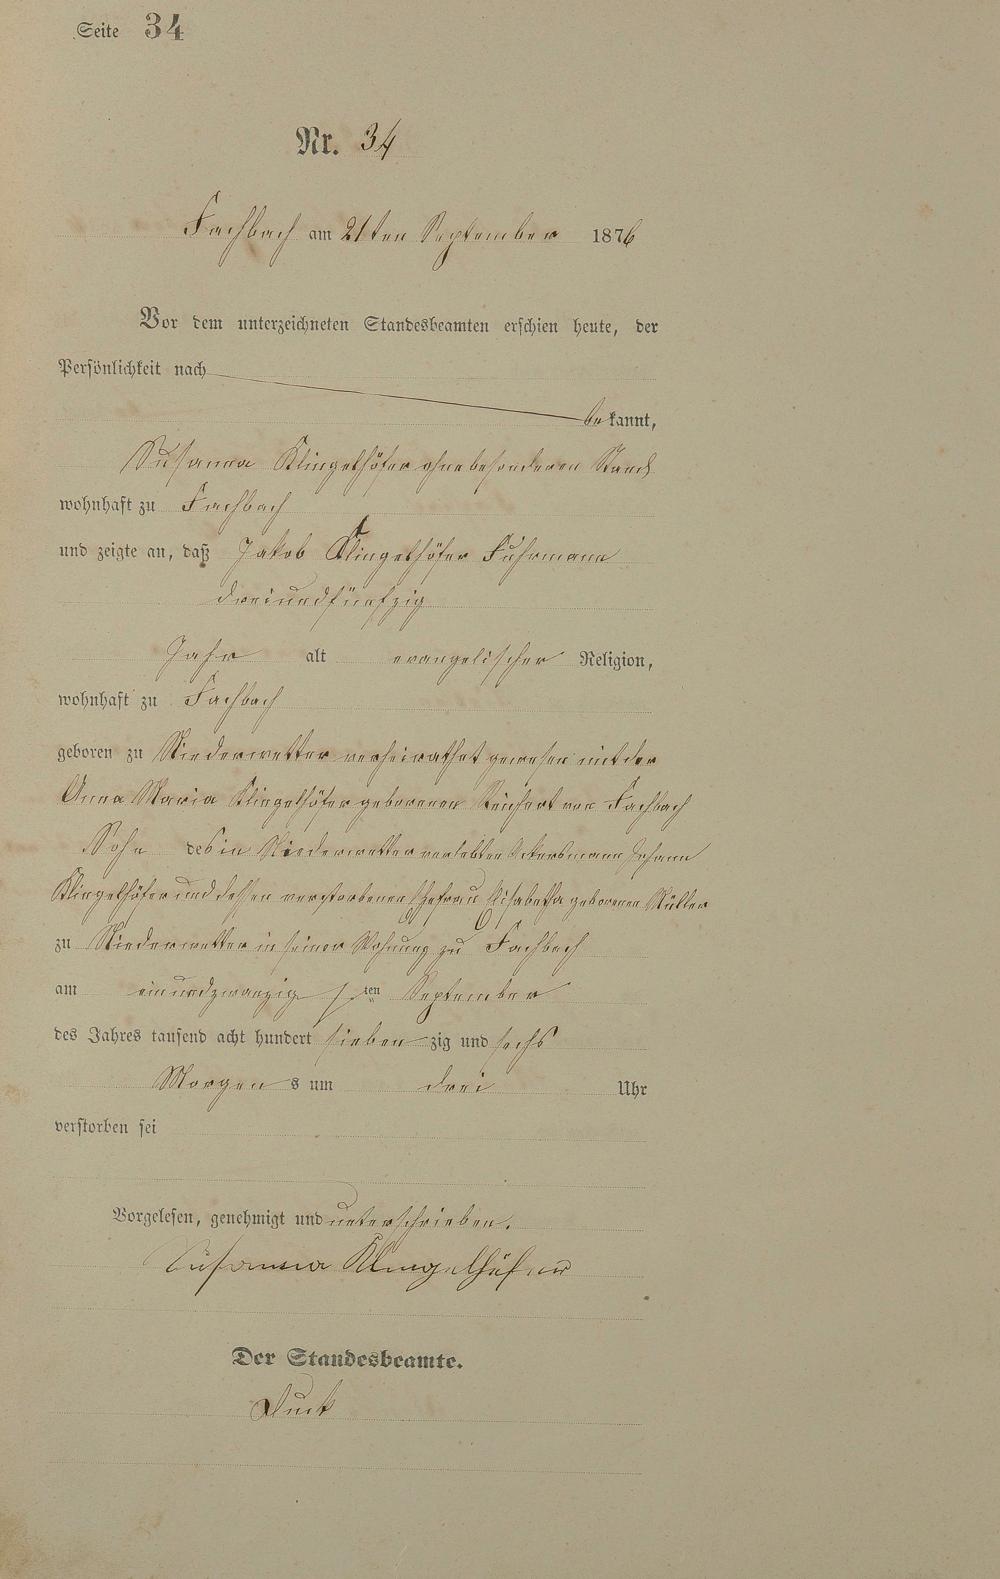 Seite 34
Nr. 34
Fachbach am 21ten September 1876
Vor dem unterzeichneten Standesbeamten erschien heute, der
Persönlichkeit nach
bekannt,
Susanna Klingelhöfer ohne besonderen Stand
wohnhaft zu Fachbach
und zeigte an, daß Jakob Klingelhöfer Fuhrmann
dreiundfünfzig
Jahr alt evangelischer Religion,
wohnhaft zu Fachbach
geboren zu Niederwetter verheirathet gewesen mit der
Anna Maria Klingelhöfer geborenen Reichert von Fachbach
Sohn des in Niederwetter verlebten Ackersmann Johann
Klingelhöfer und dessen verstorbenen Ehefrau Elisabetha geborenen Müller
zu Niederwetter in seiner Wohnung zu Fachbach
am einundzwanzigsten September
des Jahres tausend acht hundert siebenzig und sechs
Morgens um drei Uhr
verstorben sei
Vorgelesen, genehmigt und unterschrieben.
Susanna Klingelhöfer
Der Standesbeamte.